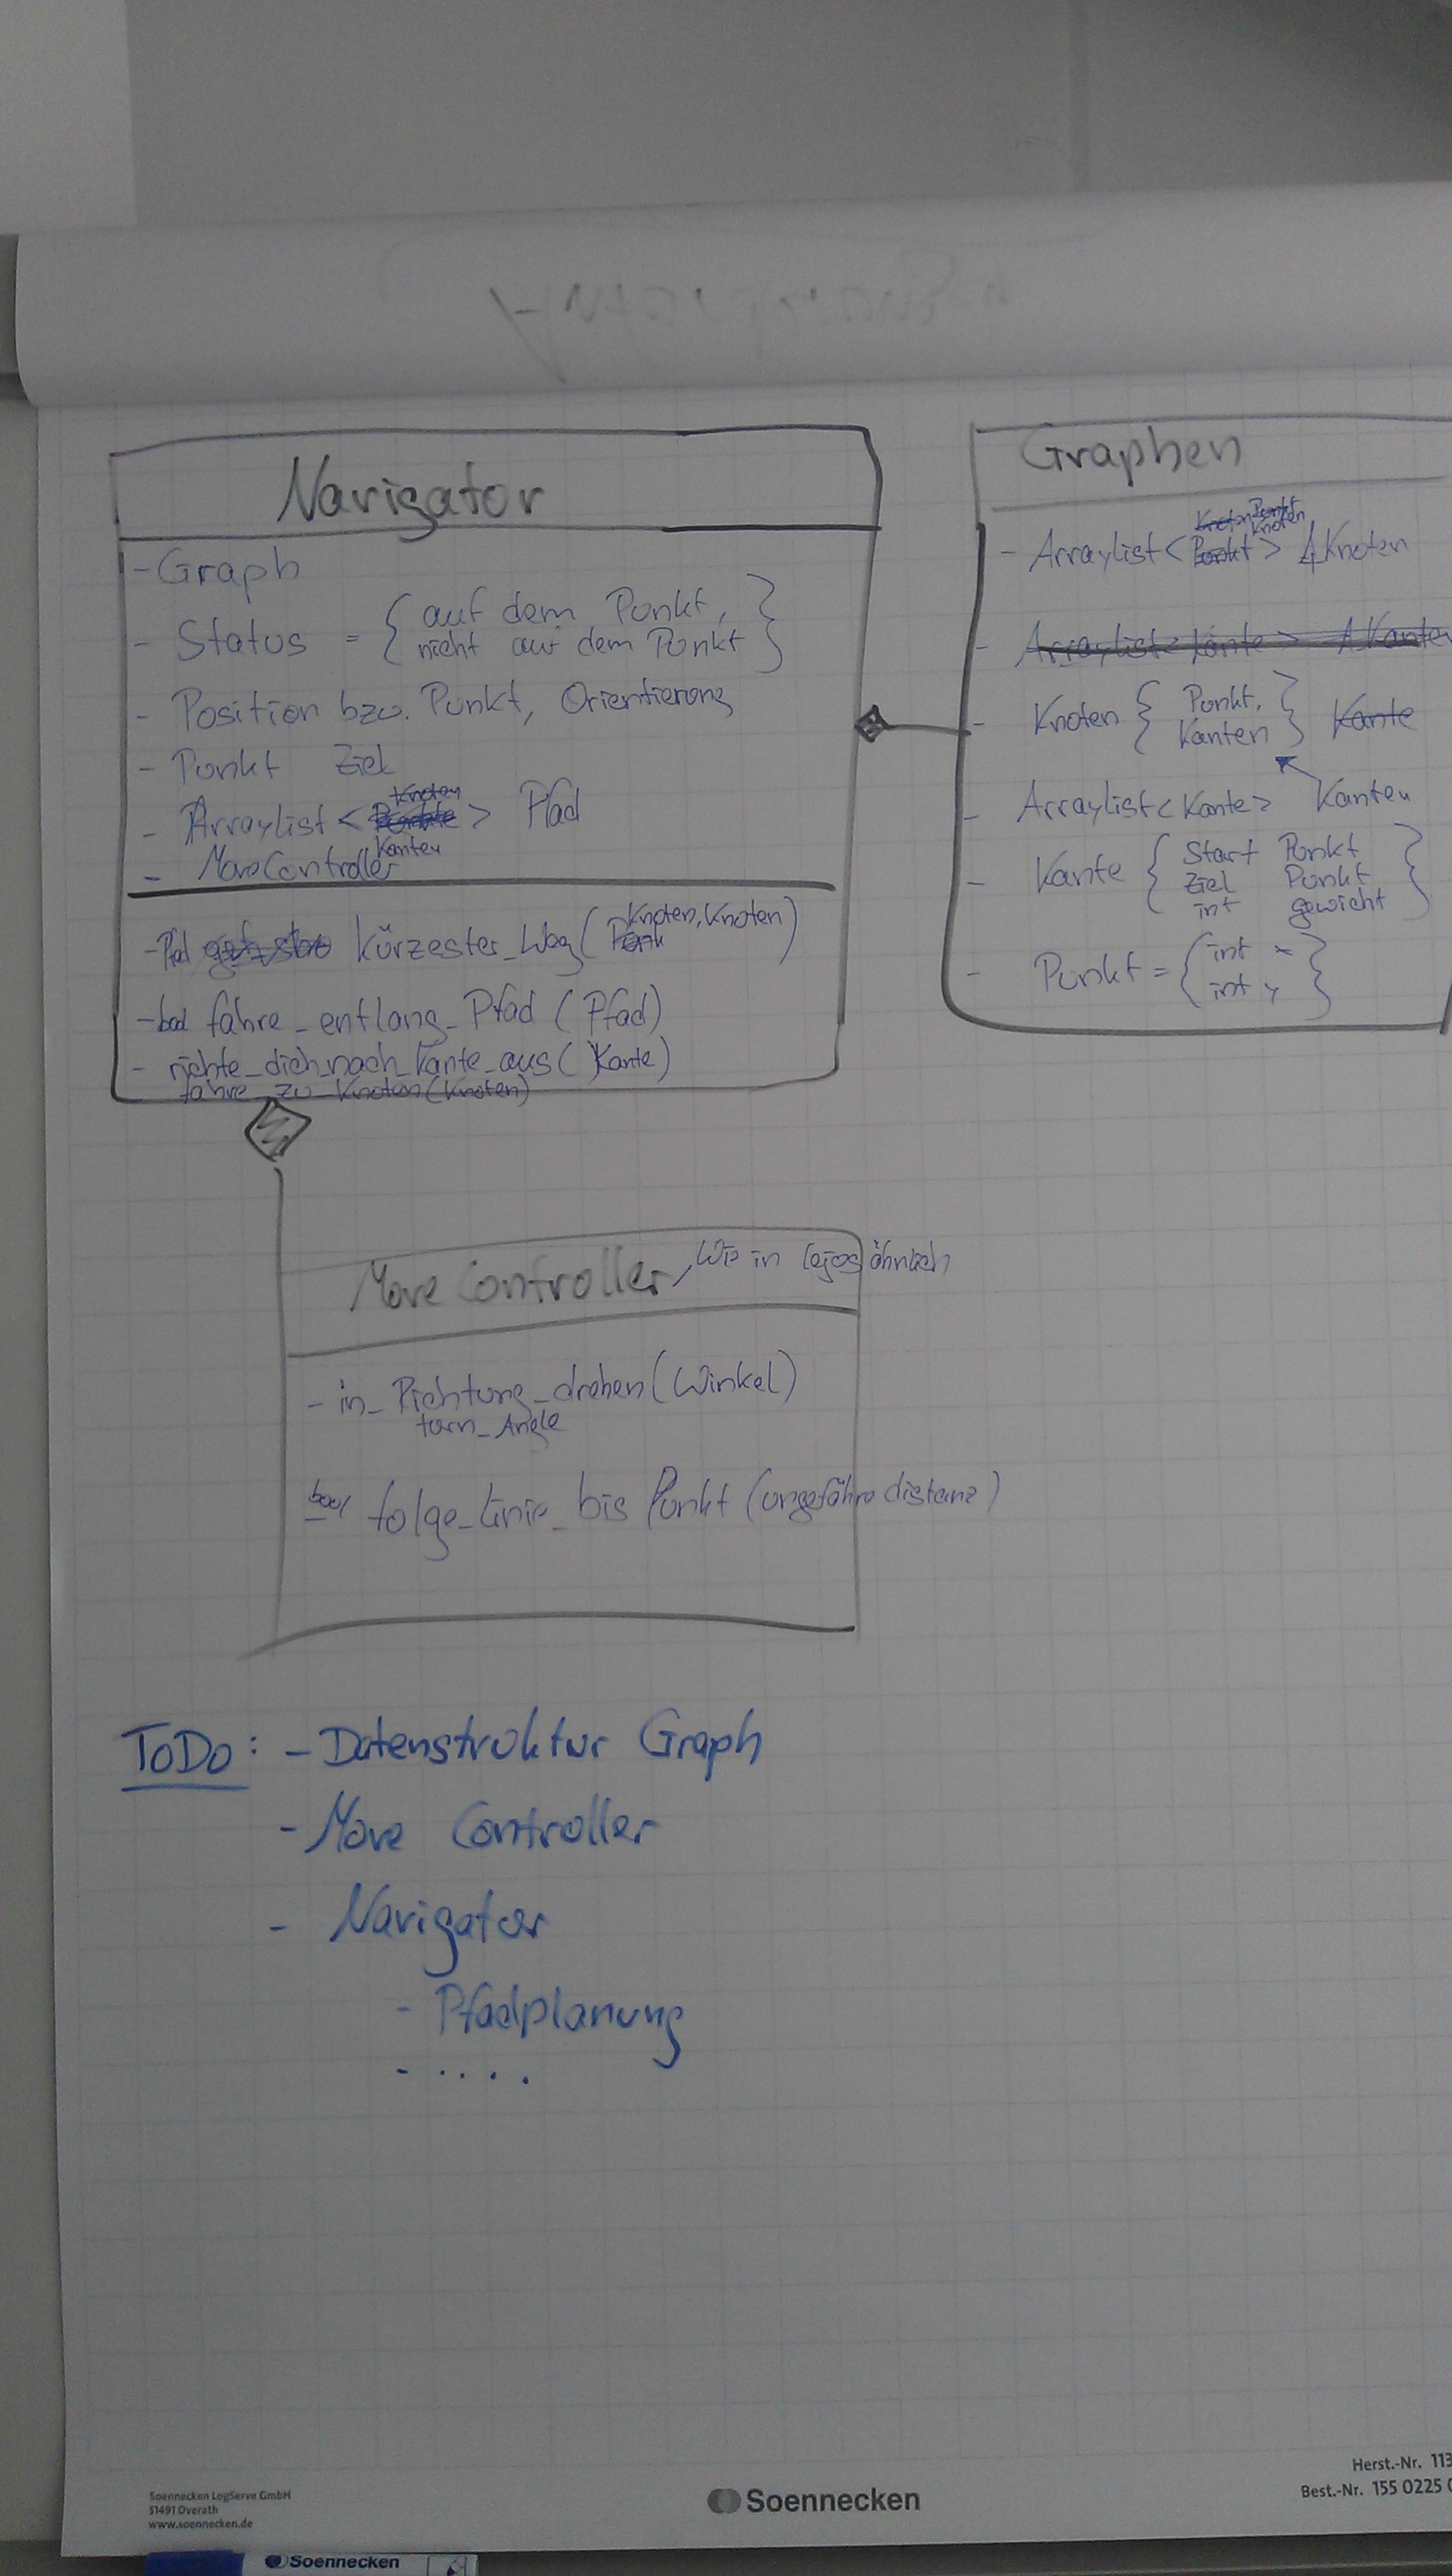 Navigator
- Graph
- Status = { auf dem Punkt,
nicht auf dem Punkt }
- Position bzw. Punkt, Orientierung
- Punkt Ziel
Knoten
- Arraylist < > Pfad
Kanten
- MoveController
Knoten, Knoten)
- Pfad kürzester_Weg(
- bool fahre_entlang_Pfad (Pfad)
- richte_dich_nach_Kante_aus( Kante)
fahre_zu_Knoten(Knoten)
Graphen
Knoten Punkt
Knoten
- Arraylist < Punkt > Knoten
- Arraylist < Kante > Kanten
- Knoten { Punkt, } Kante
Kanten
- Arraylist < Kante > Kanten
- Kante { Start Punkt
Ziel Punkt
int gewicht }
- Punkt = { int x
int y }
Move Controller, Wie in lejos ähnlich
- in_Richtung_drehen(Winkel)
turn_Angle
bool folge_Linie_bis Punkt (ungefähre distanz)
ToDo: - Datenstruktur Graph
- Move Controller
- Navigator
- Pfadplanung
- .....
Soennecken LogServe GmbH
51491 Overath
www.soennecken.de
Soennecken
Herst.-Nr. 113
Best.-Nr. 155 0225 0
Soennecken